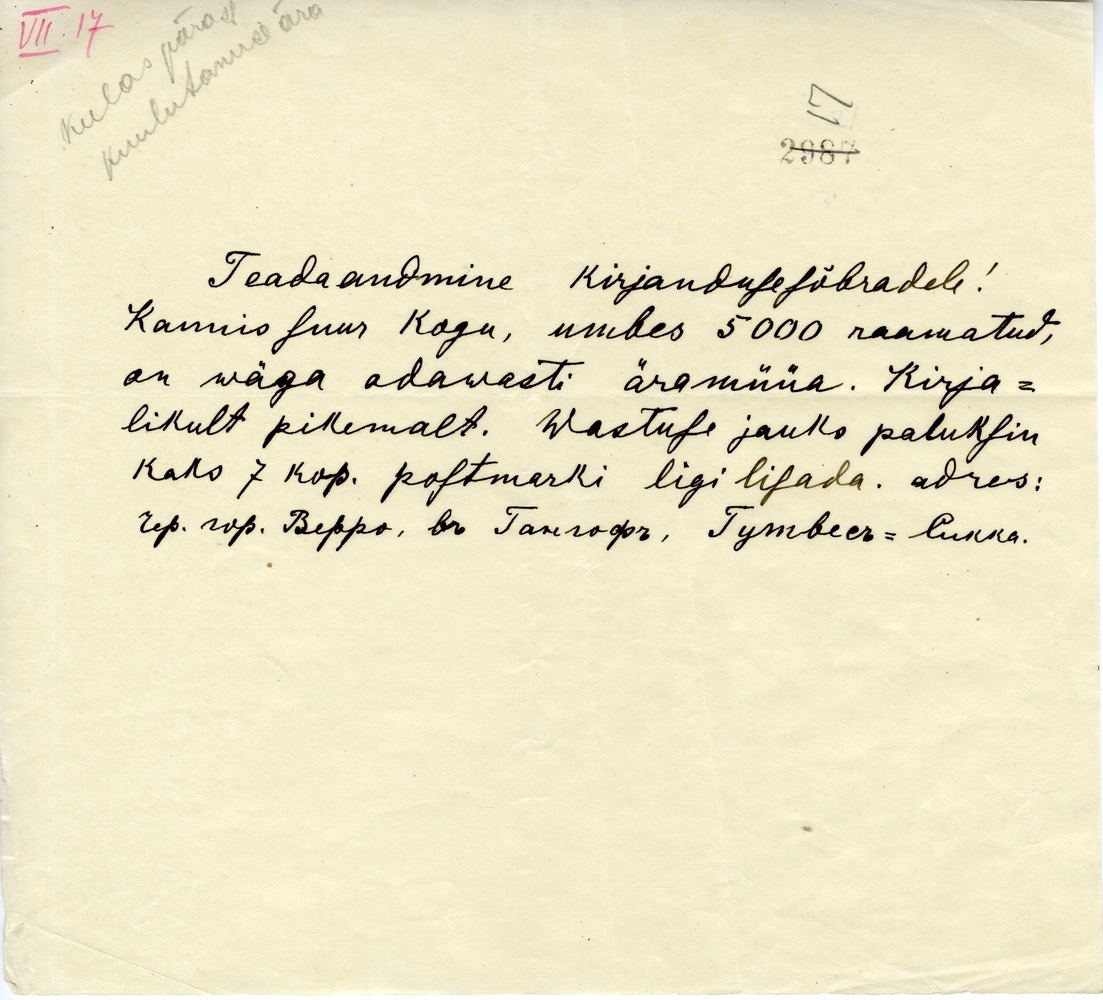 VII. 17
kulas pärast
kuulutamise ära
17
2987
Teadaandmine Kirjandusesõbradele!
Kannis suur Kogu, umbes 5000 raamatud,
on wäga odawasti äramüüa. Kirja=
likult pikemalt. Wastuse jauks paluksin
kaks 7 kop. postmarki ligi lisada. adres:
чр. гор. Верро, въ Гангофъ, Тумбееъ= Сикка.